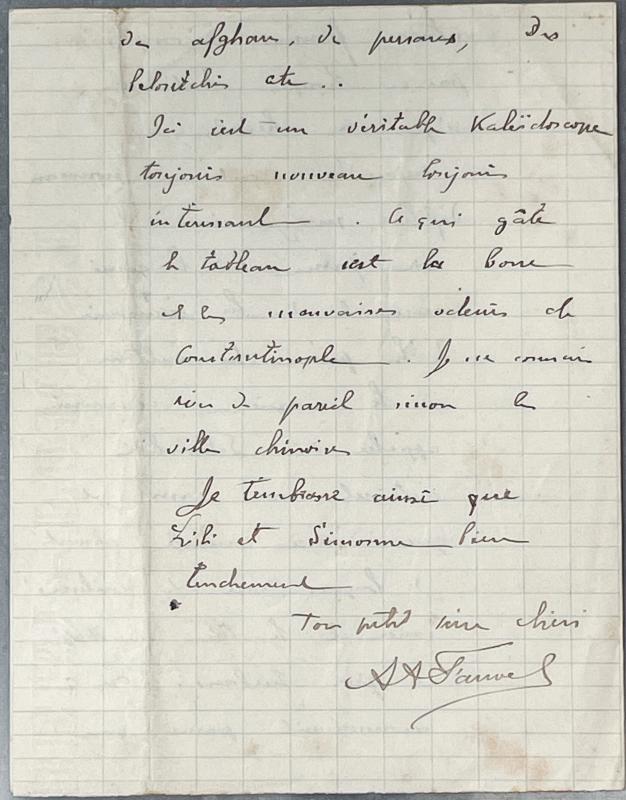 des afghans, des persans, des
beloutchis etc..
Ici c'est un véritable Kaléïdoscope
toujours nouveau toujours
intéressant. Ce qui gâte
le tableau c'est la boue
et les mauvaises odeurs de
Constantinople. Je ne connais
rien de pareil sinon les
villes chinoises
Je t'embrasse ainsi que
Lili et Simonne bien
tendrement
Ton petit père chéri
AA Fauvel